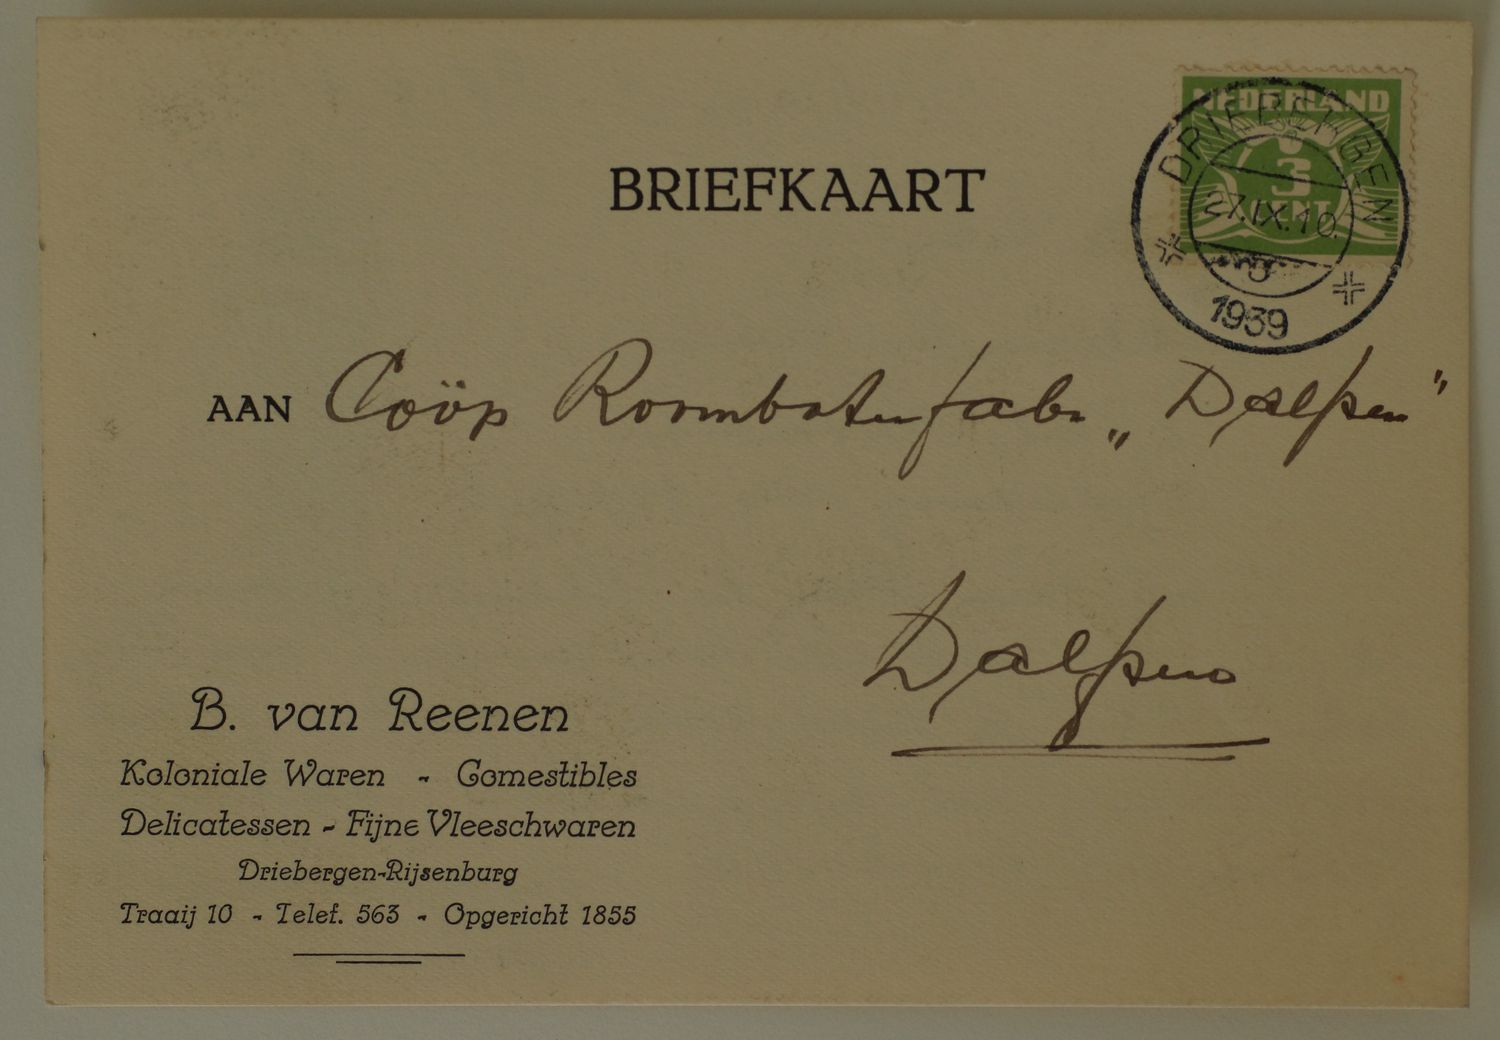 NEDERLAND
3
CENT
DRIEBERGEN
27.IX.10.
1939
BRIEFKAART
AAN Coöp Roomboterfabr „Dalfsen"
Dalfsen
B. van Reenen
Koloniale Waren - Comestibles
Delicatessen - Fijne Vleeschwaren
Driebergen-Rijsenburg
Traaij 10 - Telef. 563 - Opgericht 1855